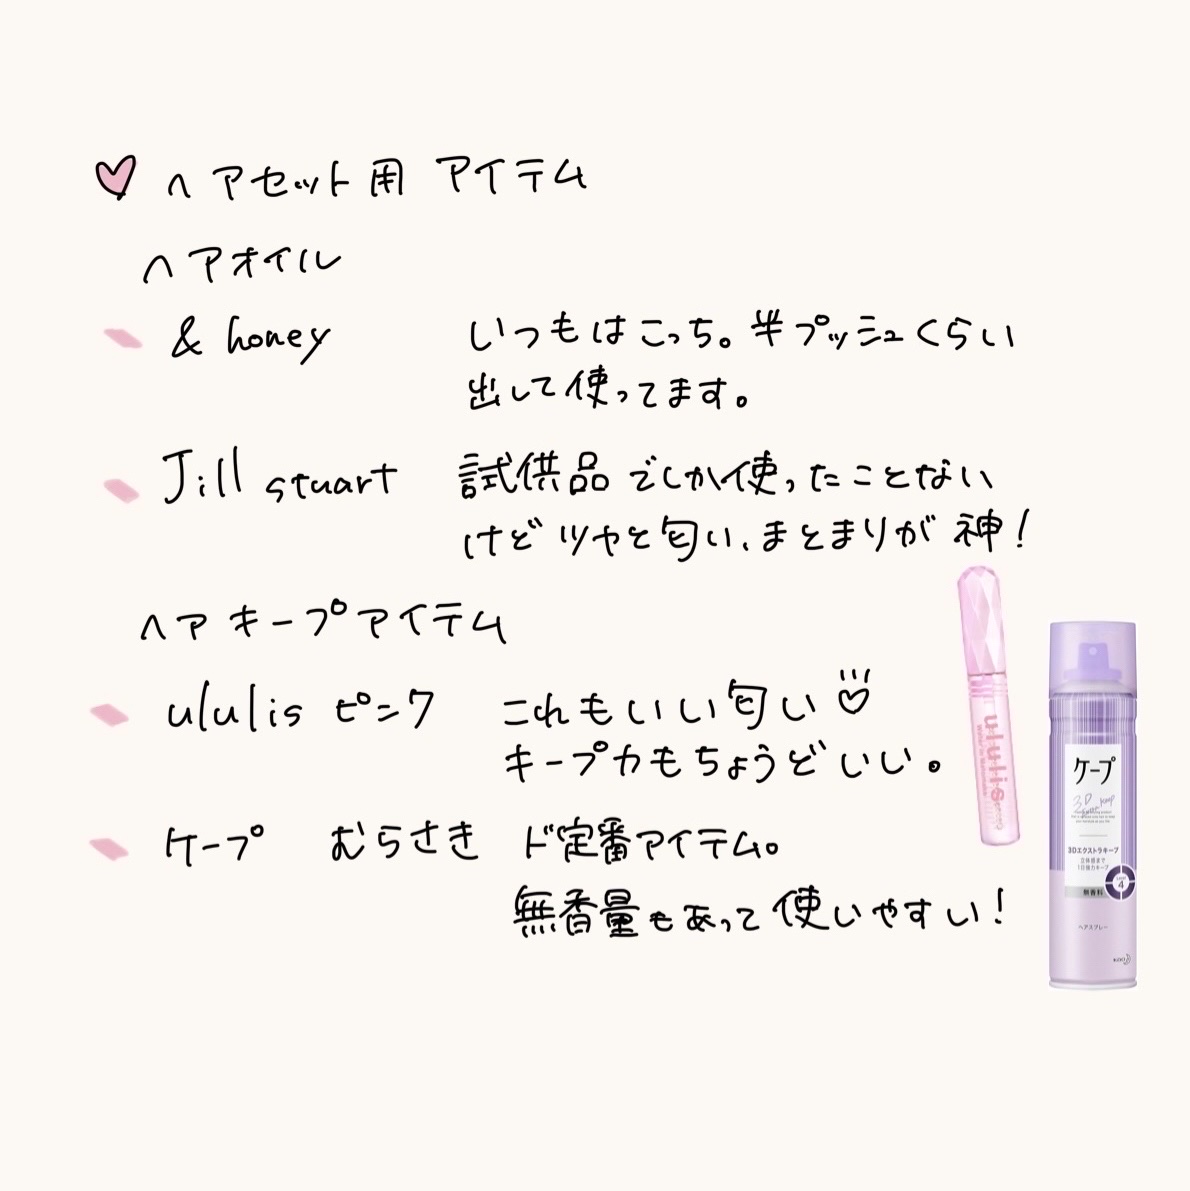 ヘアセット用 アイテム
ヘアオイル
& honey いつもはこっち。半プッシュくらい
出して使ってます。
Jill stuart 試供品でしか使ったことない
けどツヤと匂い、まとまりが神!
ヘアキープアイテム
ululis ピンク これもいい匂い
キープ力もちょうどいい。
ケープ むらさき ド定番アイテム。
無香量もあって使いやすい!
ululis
ケープ
3D
3Dエクストラキープ
立体感まで
1日強力キープ
4
無香料
ヘアスプレー